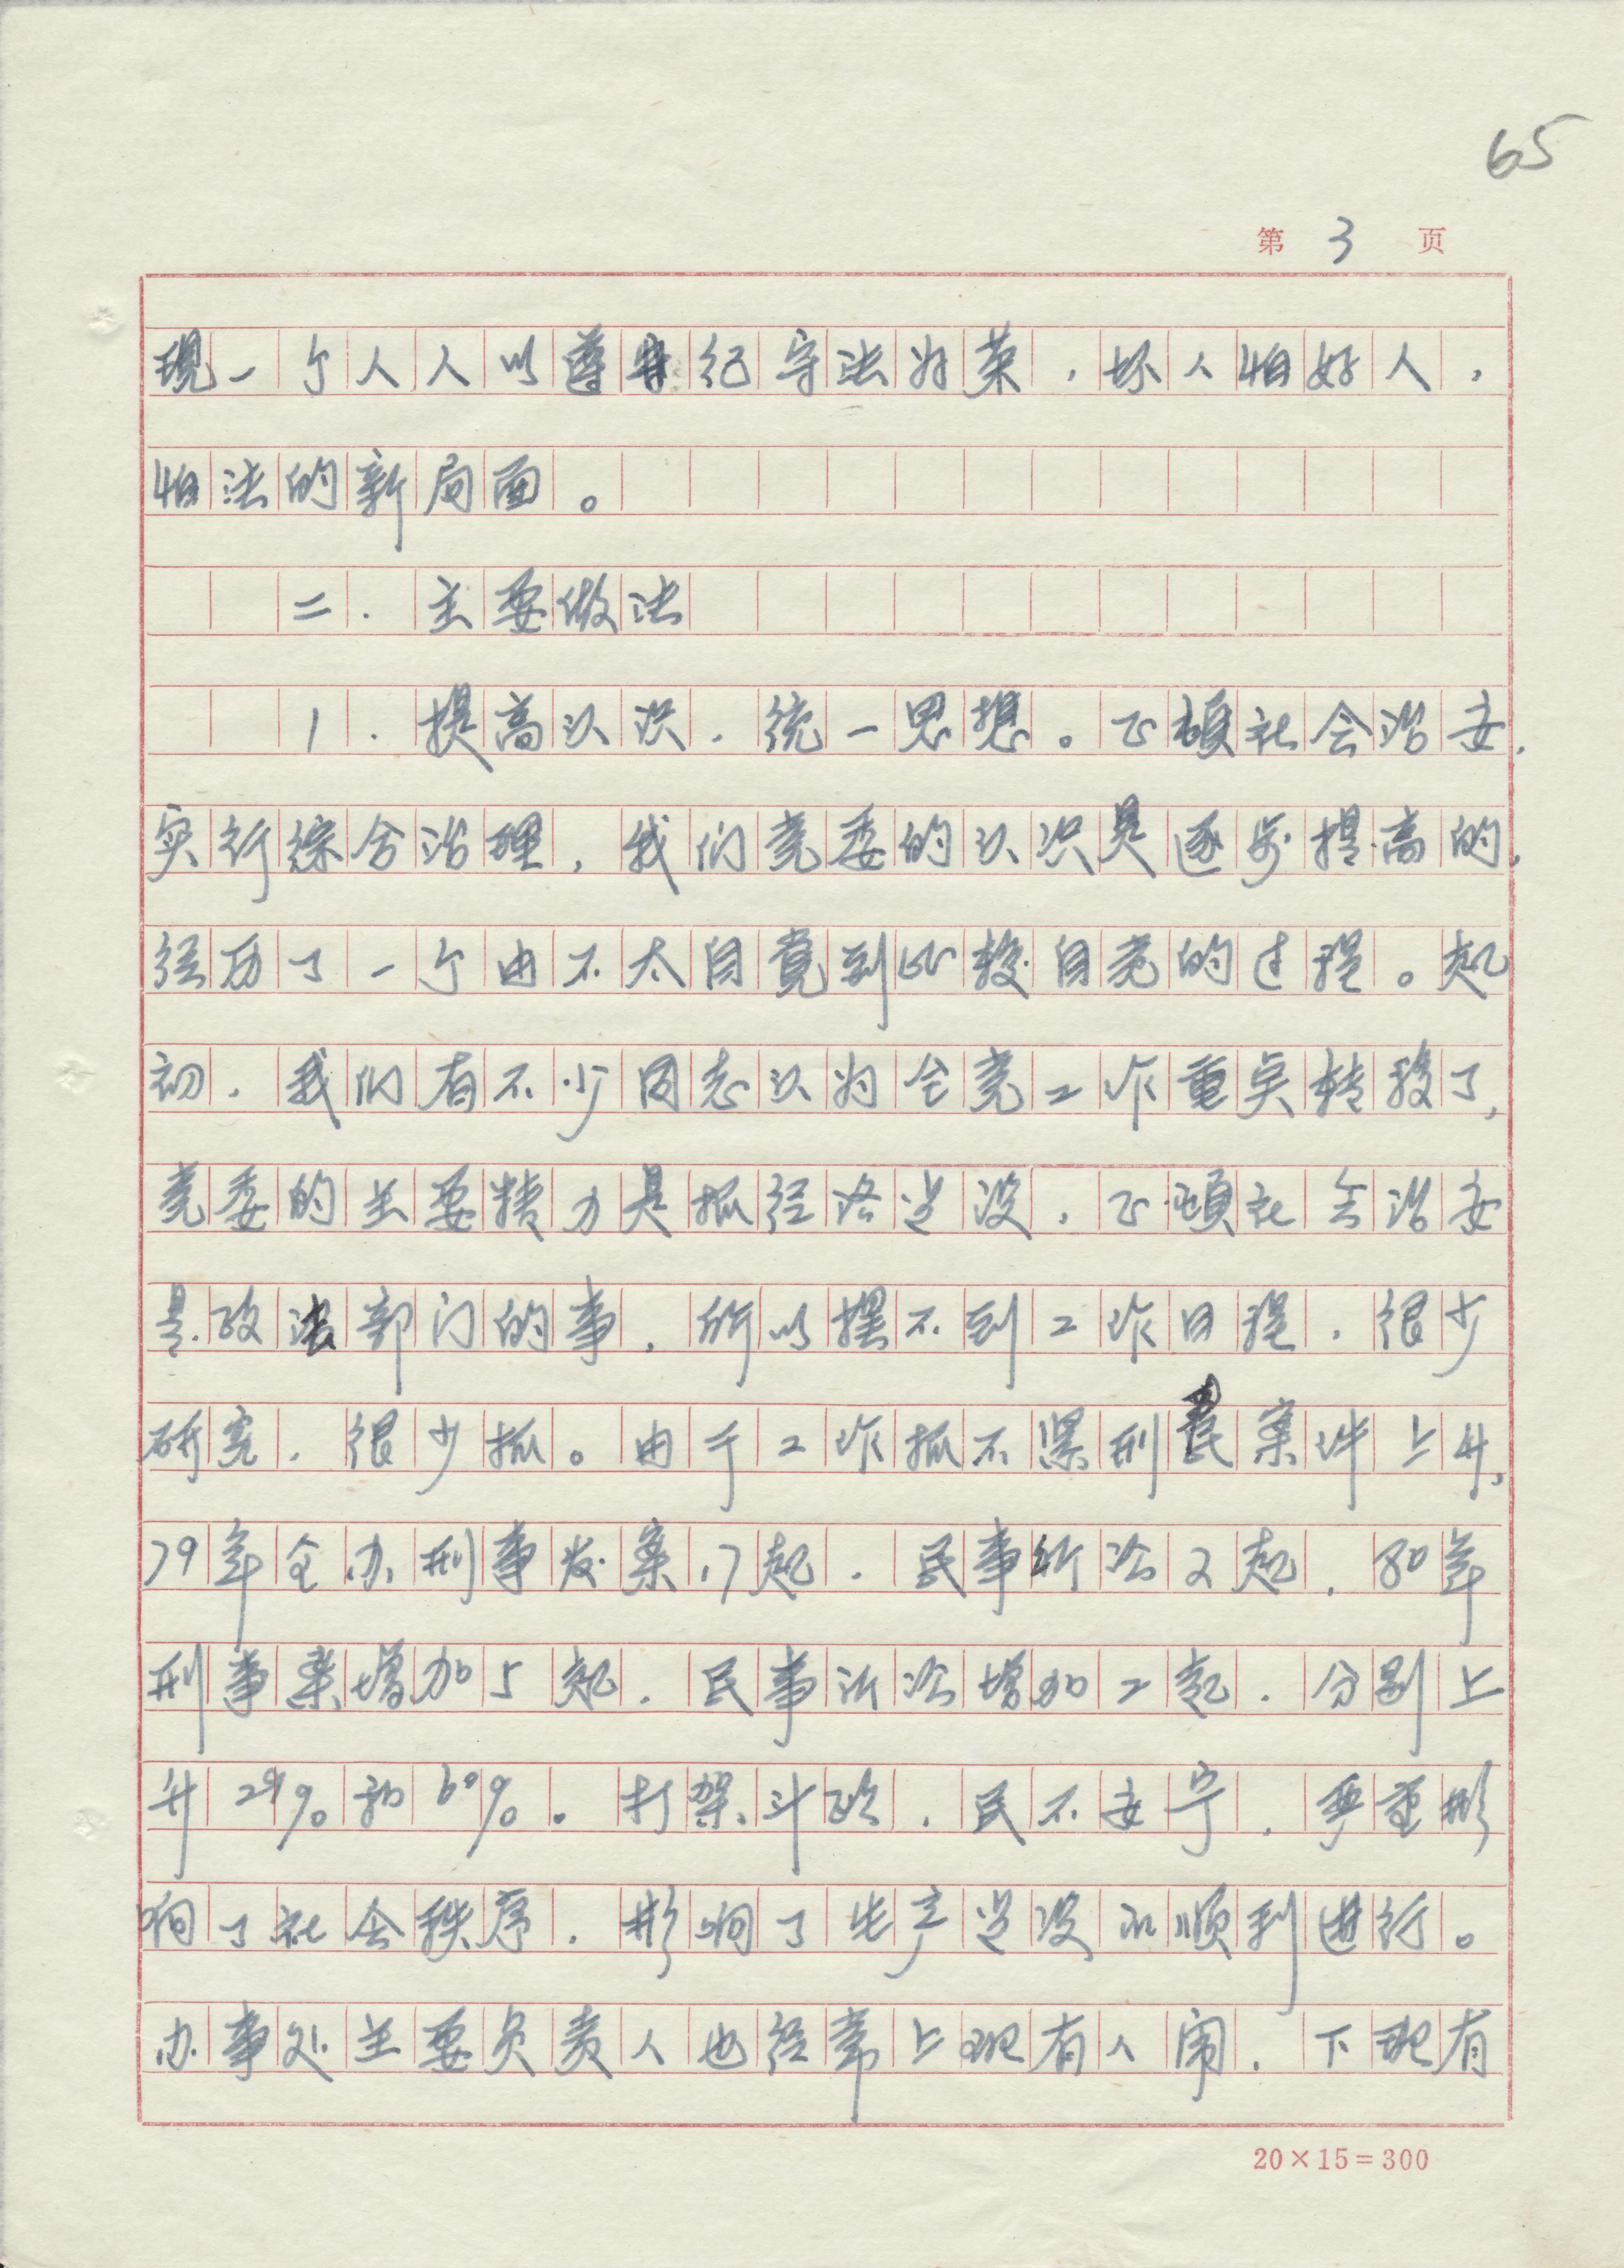 65
第 3 页
现一个人人以遵守纪守法为荣，坏人怕好人，
怕法的新局面。
二．主要做法
1．提高认识，统一思想。正顿社会治安，
实行综合治理，我们党委的认识是逐步提高的，
经历了一个由不太自觉到比较自觉的过程。起
初，我们有不少同志认为全党工作重点转移了，
党委的主要精力是抓经济建设，正顿社会治安
是政法部门的事，所以摆不到工作日程，很少
研究，很少抓。由于工作抓不紧刑民案件上升，
79年全办刑事发案17起，民事诉讼2起，80年
刑事案增加5起，民事诉讼增加2起，分别上
升29%和60%。打架斗殴，民不安宁，严重影
响了社会秩序，影响了生产建设的顺利进行。
办事处主要负责人也经常上班有人闹，下班有
20×15=300